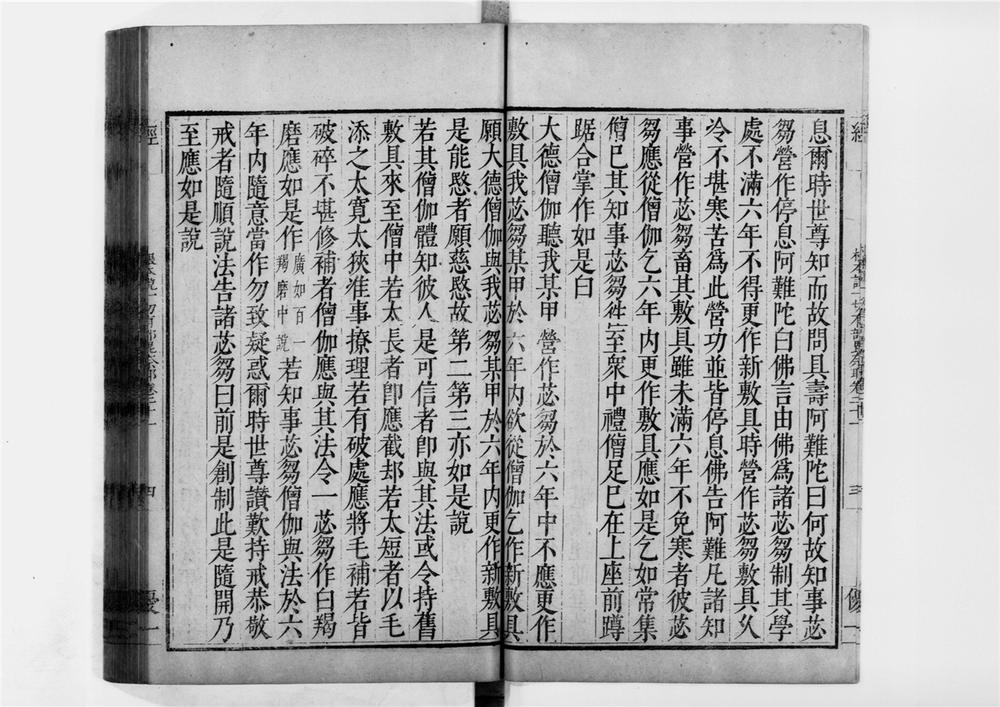 息爾時世尊知而故問具壽阿難陀曰何故知事苾
芻營作停息阿難陀白佛言由佛爲諸苾芻制其學
處不滿六年不得更作新敷具時營作苾芻敷具久
冷不堪寒苦爲此營功並皆停息佛告阿難凡諸知
事營作苾芻畜其敷具雖未滿六年不免寒者彼苾
芻應從僧伽乞六年內更作敷具應如是乞如常集
僧巳其知事苾芻徃至衆中禮僧足巳在上座前蹲
踞合掌作如是白
大德僧伽聽我某甲營作苾芻於六年中不應更作
敷具我苾芻某甲於六年內欲從僧伽乞作新敷具
願大德僧伽與我苾芻某甲於六年內更作新敷具
是能愍者願慈愍故第二第三亦如是說
若其僧伽體知彼人是可信者卽與其法或令持舊
敷具來至僧中若太長者卽應截却若太短者以毛
添之太寬太狹准事撩理若有破處應將毛補若皆
破碎不堪修補者僧伽應與其法令一苾芻作白羯
磨應如是作廣如百一羯磨中說若知事苾芻僧伽與法於六
年內隨意當作勿致疑惑爾時世尊讃歎持戒恭敬
戒者隨順說法告諸苾芻曰前是創制此是隨開乃
至應如是說
經
四
優一